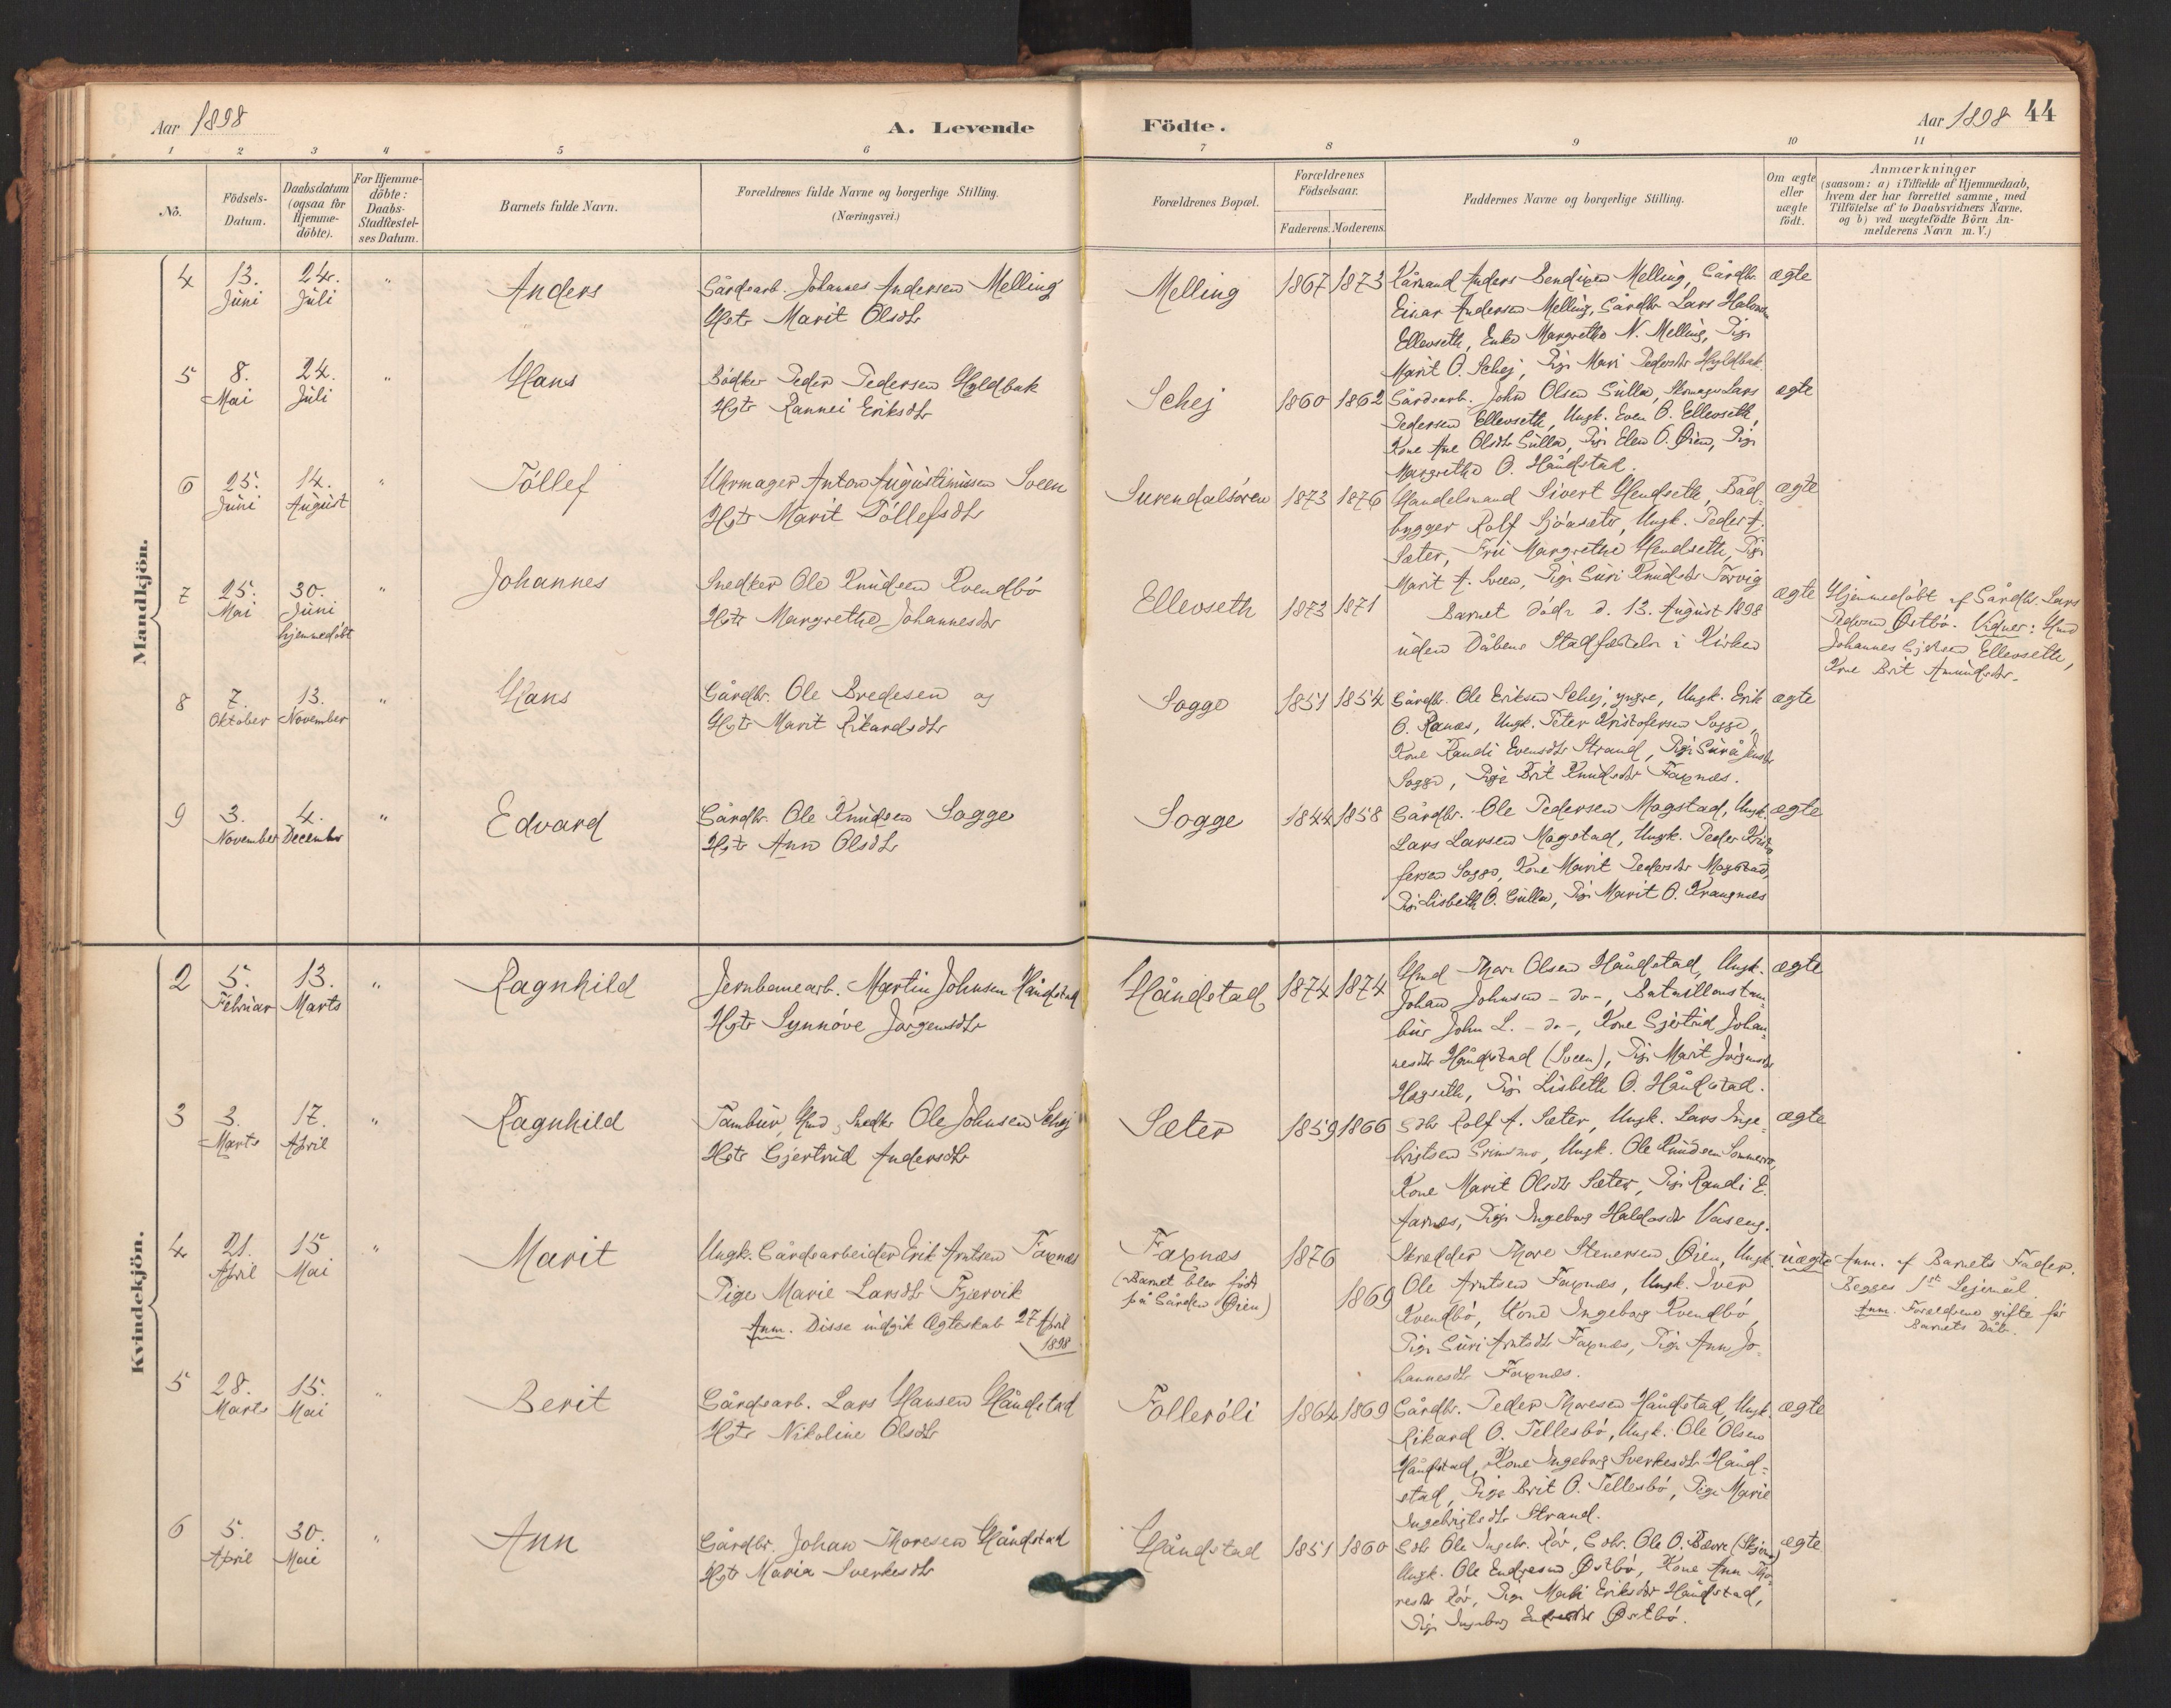 Aar 1898 A. Levende Födte. Aar 1898 44
1 2 3 4 5 6 7 8 9 10 11
No.
Födsels-
Datum.
Daabsdatum
(ogsaa for
Hjemme-
döbte).
For Hjemme-
döbte:
Daabs-
Stadfæstel-
ses Datum.
Barnets fulde Navn.
Forældrenes fulde Navne og borgerlige Stilling.
(Næringsvei.)
Forældrenes Bopæl.
Forældrenes
Födselsaar.
Faderens. Moderens.
Faddernes Navne og borgerlige Stilling.
Om ægte
eller
uægte
födt.
Anmærkninger
(saasom: a) i Tilfælde af Hjemmedaab,
hvem der har forrettet samme, med
Tilföielse af to Daabsvidners Navne,
og b) ved uægtefödte Börn An-
melderens Navn m. V.)
Mandkjön.
4 13. Juni 24. Juli " Anders
Gårdsarb. Johannes Andersen Melling
Hstr Marit Olsdtr
Melling 1867 1873
Kårmand Anders Bendixen Melling, Gårdbr.
Einar Andersen Melling, Gårdbr Lars
Ellevseth, Enke Margrethe N. Melling, Pige
Marit O. Schej, Pige Mari Pedersdtr Hyldbak.
ægte
5 8. Mai 24. Juli " Hans
Bødker Peder Pedersen Hyldbak
Hstr Rannei Eriksdtr
Schej 1860 1862
Gårdsarb. John Olsen Gulla, Lars
Pedersen Ellevseth, Ungk. Even O. Ellevseth,
Kone Ane Olsdtr Gulla, Pige Elen O. Øien, Pige
Margrethe O. Håndstad.
ægte
6 25. Juni 14. August " Töllef
Uhrmager Anton Augustinussen Sveen
Hstr Marit Töllefsdtr
Surendalsören 1873 1876
Handelsmand Sivert Hendseth, Båd-
bygger Rolf Sjöasæter, Ungk. Peder A.
Sæter, Frü Margrethe Hendseth, Pige
Marit A. Sveen, Pige Siiri Knudsdtr Torvig
ægte
7 25. Mai 30. Juni hjemmedöbt " Johannes
Snedker Ole Knudsen Kvendbö
Hstr Margrethe Johannesdtr
Ellevseth 1873 1871
Barnet döde d. 13. August 1898
uden Dåbens Stadfæstelse i Kirken
ægte
Hjemmedöbt af Gårdbr. Lars
Pedersen Østbö. Vidner: Hmd
Johannes Ellevseth,
Kone Brit Amundsdtr.
8 7. Oktober 13. November " Hans
Gårdbr. Ole Bredesen og
Hstr Marit Rikardsdtr
Sogge 1851 1854
Gårdbr. Ole Eriksen Schej, yngre, Ungk. Erik
O. Ranæs, Ungk. Peter Kristofersen Sogge,
Kone Randi Evensdtr Strand, Pige
Sogge, Pige Brit Knudsdtr Faxnæs.
ægte
9 3. November 4. December " Edvard
Gårdbr. Ole Knudsen Sogge
Hstr Ann Olsdtr
Sogge 1844 1858
Gårdbr. Ole Pedersen Magstad, Ungk.
Lars Larsen Magstad, Ungk. Peder Kristo
fersen Sogge, Kone Marit Pedersdtr Magstad,
Pige Lisbeth O. Gulla, Pige Marit O. Krangnæs
ægte
Kvindekjön.
2 5. Februar 13. Marts " Ragnhild
Jernbanearb. Martin Johnsen Håndstad
Hstr Synnöve Jörgensdtr
Håndstad 1874 1874
Hmd Thore Olsen Håndstad, Ungk.
Johan Johnsen - do -, Bataillonstam-
bur John L. - do -, Kone Gjertrud Johan-
nesdtr Håndstad (Sveen), Pige Marit Jörgensdtr
Hagseth, Pige Lisbeth O. Håndstad.
ægte
3 3. Marts 17. April " Ragnhild
Tambur, Hmd, Snedker Ole Johnsen Schej
Hstr Gjertrud Andersdtr
Sæter 1859 1866
Gdbr Rolf A. Sæter, Ungk. Lars Inge-
brigtsen Grimsmo, Ungk. Ole Knudsen Sommerro,
Kone Marit Olsdtr Sæter, Pige Randi E.
Aarnes, Pige Ingeborg Haldosdtr Vaseng.
ægte
4 21. April 15 Mai " Marit
Ungk. Gårdsarbeider Erik Arntsen Faxnæs
Pige Marie Larsdtr Fjærvik
Anm. Disse indgik Ægteskab 27 April
1898
Faxnæs
(Barnet blev född
på Gården Øien)
1876 1869
Skrædder Thore Stenersen Øien, Ungk.
Ole Arntsen Faxnæs, Ungk. Iver
Kvendbö, Kone Ingeborg Kvendbö
Pige Suri Arntsdtr Faxnæs, Pige Ann Jo-
hannesdtr Faxnæs.
uægte
Anm. af Barnets Fader.
Begges 1ste Lejermål.
Anm. Forældrene gifte för
Barnets Dåb.
5 28. Marts 15. Mai " Berit
Gårdsarb. Lars Hansen Håndstad
Hstr Nikoline Olsdtr
Folleröli 1864 1869
Gårdbr. Peder Thoresen Håndstad, Ungk.
Rikard O. Tellesbö, Ungk. Ole Olsen
Håndstad, Kone Ingeborg Sverkesdtr Hånd-
stad, Pige Brit O. Tellesbö, Pige Marie
Ingebrigtsdtr Strand.
ægte
6 5. April 30. Mai " Ann
Gårdbr. Johan Thoresen Håndstad
Hstr Maria Sverkesdtr
Håndstad 1851 1860
Gdbr Ole Ingebr. Röv, Gdbr. Ole O. Bævre
Ungk. Ole Endresen Østbö, Kone Ann Tho-
resdtr Röv, Pige Mari Eriksdtr Håndstad,
Pige Ingeborg Endresdtr Østbö.
ægte